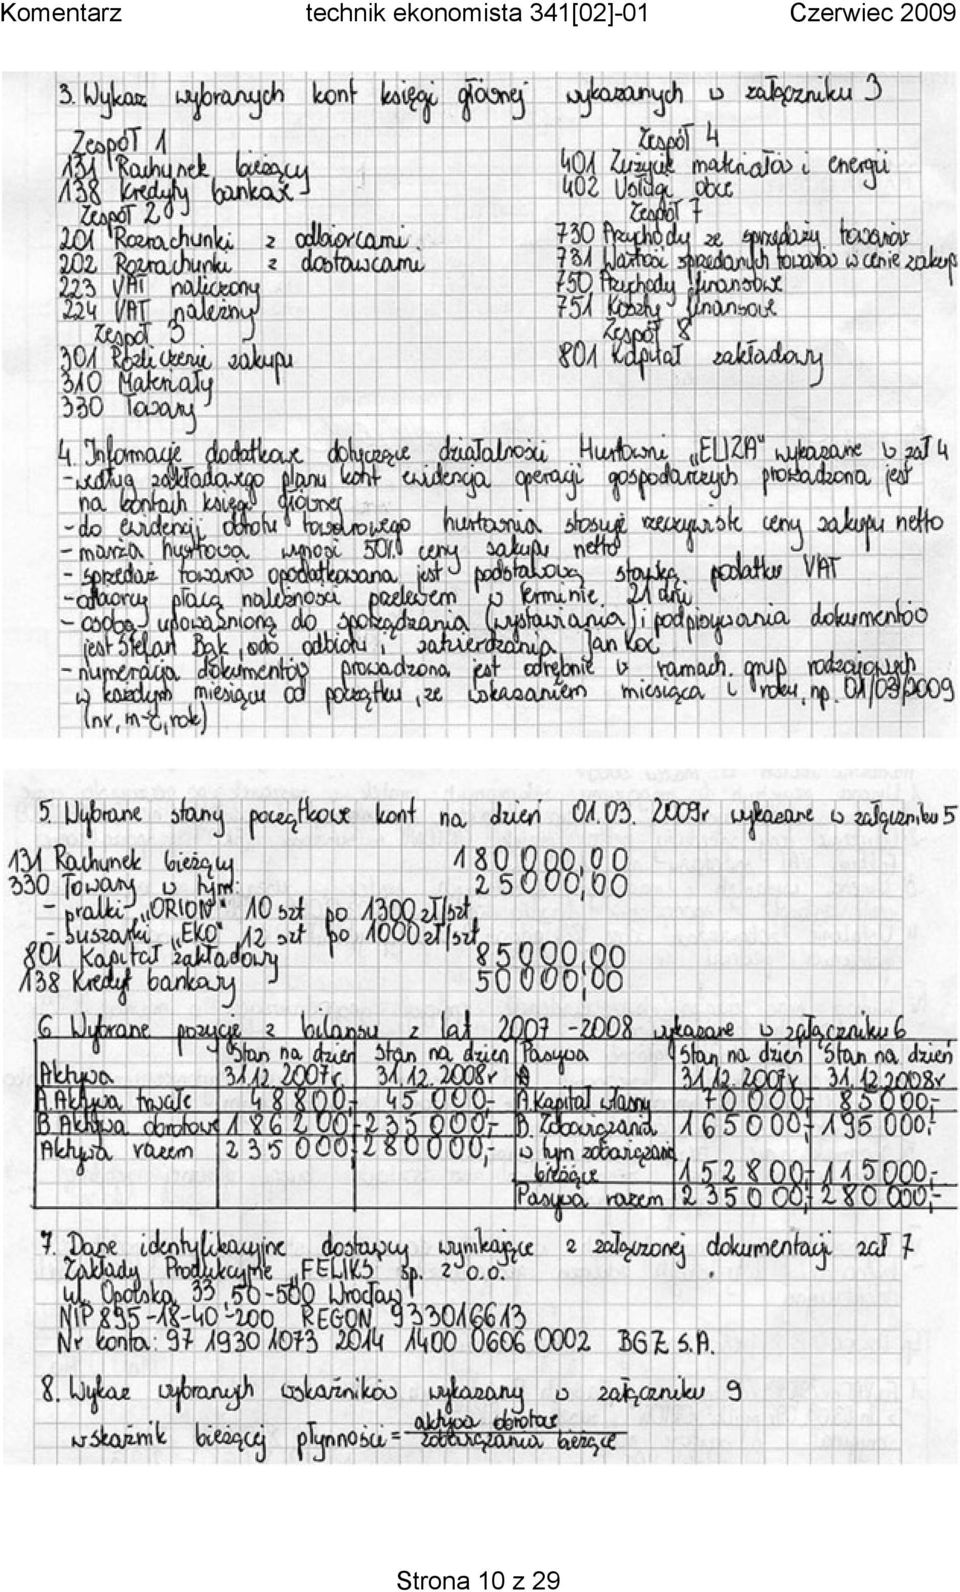 Komentarz technik ekonomista 341[02]-01 Czerwiec 2009
3. Wykaz wybranych kont księgi głównej wykazanych w załączniku 3
Zespół 1
131 Rachunek bieżący
138 Kredyty bankowe
Zespół 2
201 Rozrachunki z odbiorcami
202 Rozrachunki z dostawcami
223 VAT naliczony
224 VAT należny
Zespół 3
301 Rozliczenie zakupu
310 Materiały
330 Towary
Zespół 4
401 Zużycie materiałów i energii
402 Usługi obce
Zespół 7
730 Przychody ze sprzedaży towarów
731 Wartość sprzedanych towarów w cenie zakup
750 Przychody finansowe
751 Koszty finansowe
Zespół 8
801 Kapitał zakładowy
4. Informacje dodatkowe dotyczące działalności Hurtowni „ELIZA" wykazane w zał 4
- według zakładowego planu kont ewidencja operacji gospodarczych prowadzona jest
na kontach księgi głównej
- do ewidencji obrotu towarowego hurtownia stosuje rzeczywiste ceny zakupu netto
- marża hurtowa wynosi 50% ceny zakupu netto
- sprzedaż towarów opodatkowana jest podstawową stawką podatku VAT
- odbiorcy płacą należności przelewem w terminie 21 dni
- osobą upoważnioną do sporządzania (wystawiania) i podpisywania dokumentów
jest Stefan Bąk, do odbioru i zatwierdzania Jan Koc
- numeracja dokumentów prowadzona jest odrębnie w ramach grup rodzajowych
w każdym miesiącu od początku, ze wskazaniem miesiąca i roku, np. 01/03/2009
(nr, m-c, rok)
5. Wybrane stany początkowe kont na dzień 01.03.2009r wykazane w załączniku 5
131 Rachunek bieżący 180 000,00
330 Towary w tym: 25 000,00
- pralki „ORION" 10 szt po 1300 zł/szt
- suszarki „EKO" 12 szt po 1000 zł/szt
801 Kapitał zakładowy 85 000,00
138 Kredyt bankowy 50 000,00
6 Wybrane pozycje z bilansu z lat 2007-2008 wykazane w załączniku 6
Aktywa Stan na dzień 31.12.2007r Stan na dzień 31.12.2008r Pasywa Stan na dzień 31.12.2007r Stan na dzień 31.12.2008r
A. Aktywa trwałe 48 800,- 45 000,- A Kapitał własny 70 000,- 85 000,-
B. Aktywa obrotowe 186 200,- 235 000,- B. Zobowiązania 165 000,- 195 000,-
Aktywa razem 235 000,- 280 000,- w tym zobowiązania
bieżące 152 800,- 115 000,-
Pasywa razem 235 000,- 280 000,-
7. Dane identyfikacyjne dostawcy wynikające z załączonej dokumentacji zał 7
Zakłady Produkcyjne „FELIKS" sp. z o.o.
ul. Opolska 33 50-500 Wrocław
NIP 895-18-40-200 REGON 933016613
Nr konta: 97 1930 1073 2014 1400 0606 0002 BGŻ S.A.
8. Wykaz wybranych wskaźników wykazany w załączniku 9
wskaźnik bieżącej płynności = aktywa obrotowe
zobowiązania bieżące
Strona 10 z 29